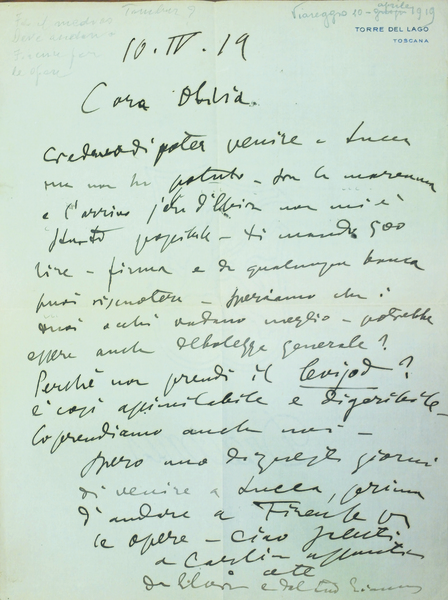 Viareggio 10 - aprile 1919
TORRE DEL LAGO
TOSCANA
10. IV. 19
Cara
Credevo di poter venire a Lucca
ma non ho potuto - tra la maremma
e l'arrivo non mi è
stato possibile - ti mando 500
lire - firma e da qualunque banca
puoi riscuotere - speriamo che i
tuoi occhi vadano meglio - potrebbe
essere anche debolezza generale?
Perchè non prendi il
è così assimilabile e digeribile -
Lo prendiamo anche noi -
Spero uno di questi giorni
di venire a Lucca, prima
d'andare a Firenze
le opere - Ciao saluti
a
da Elvira e dal tuo